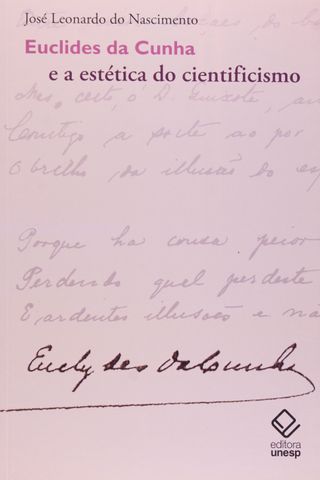 José Leonardo do Nascimento
Euclides da Cunha
e a estética do cientificismo
Mas, certo, ó D. Quixote, ain
Comtigo a sorte ao por
O brilho da illusão do esp
Porque ha cousa peior
Perdendo qual perdeste
E ardentes illusões e nã
Euclydes da Cunha
editora
unesp